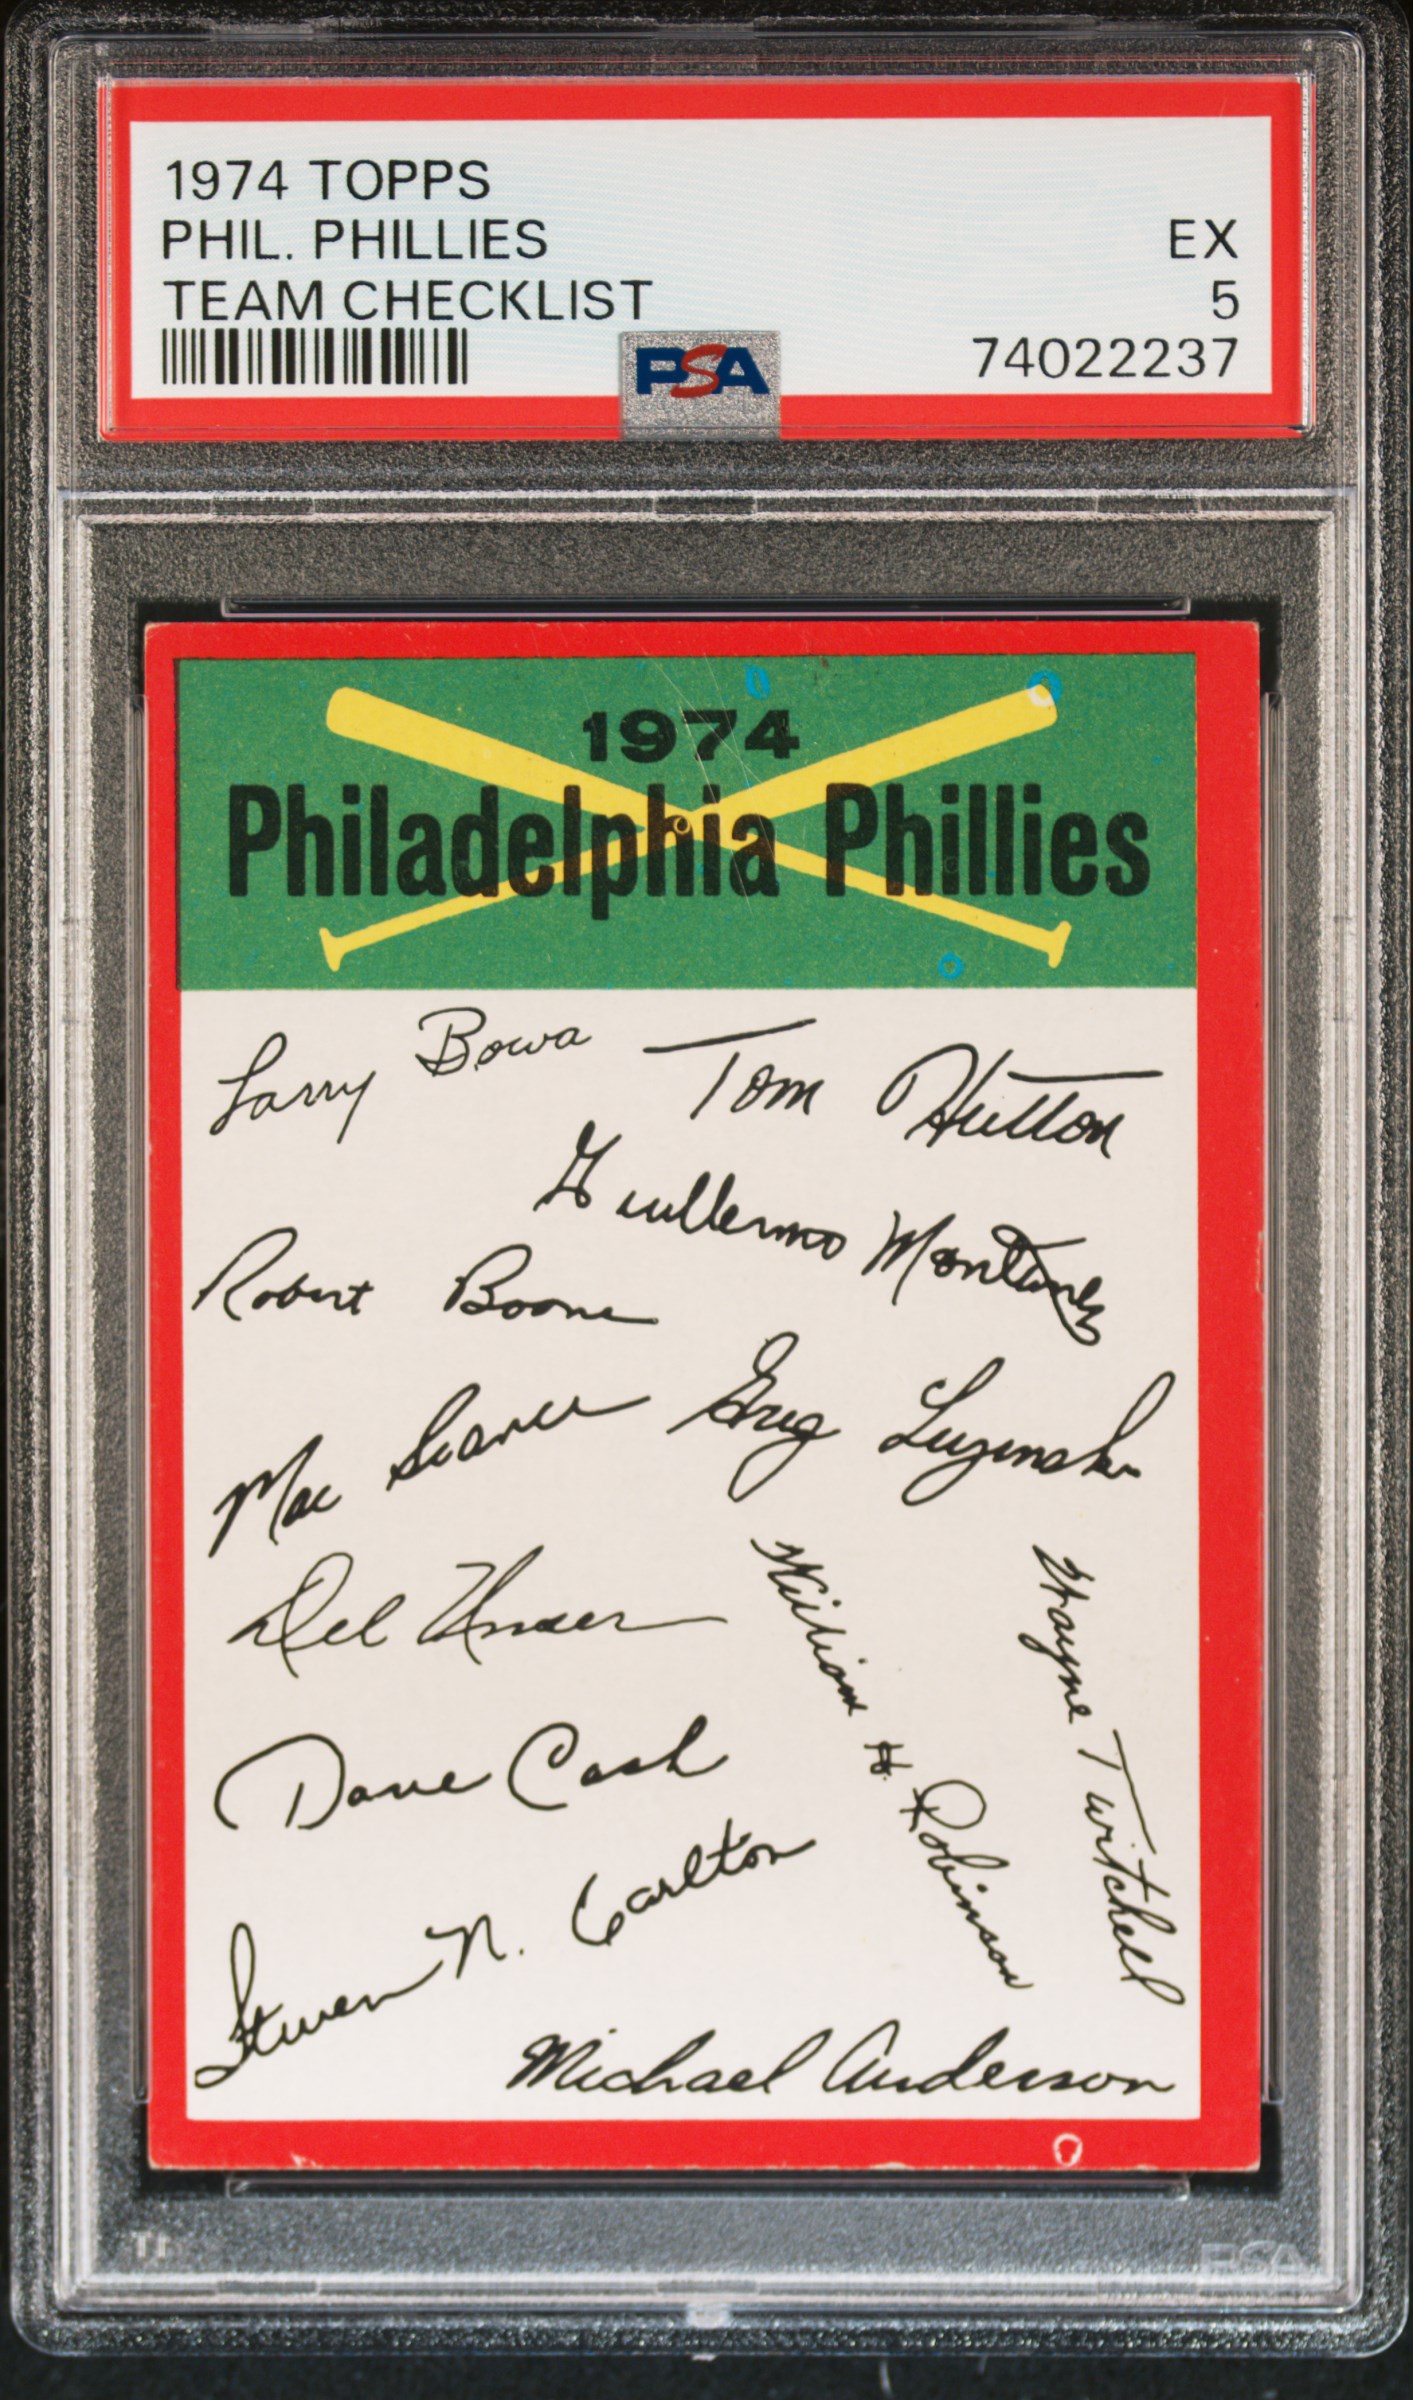 1974 TOPPS
PHIL. PHILLIES
EX
TEAM CHECKLIST
5
PSA
74022237
1974
Philadelphia Phillies
Larry Bowa
Tom Hutton
Guillermo Montanez
Robert Boone
Mac Scarce
Greg Luzinski
Del Unser
William H. Robinson
Wayne Twitchell
Dave Cash
Steven N. Carlton
Michael Anderson
PSA